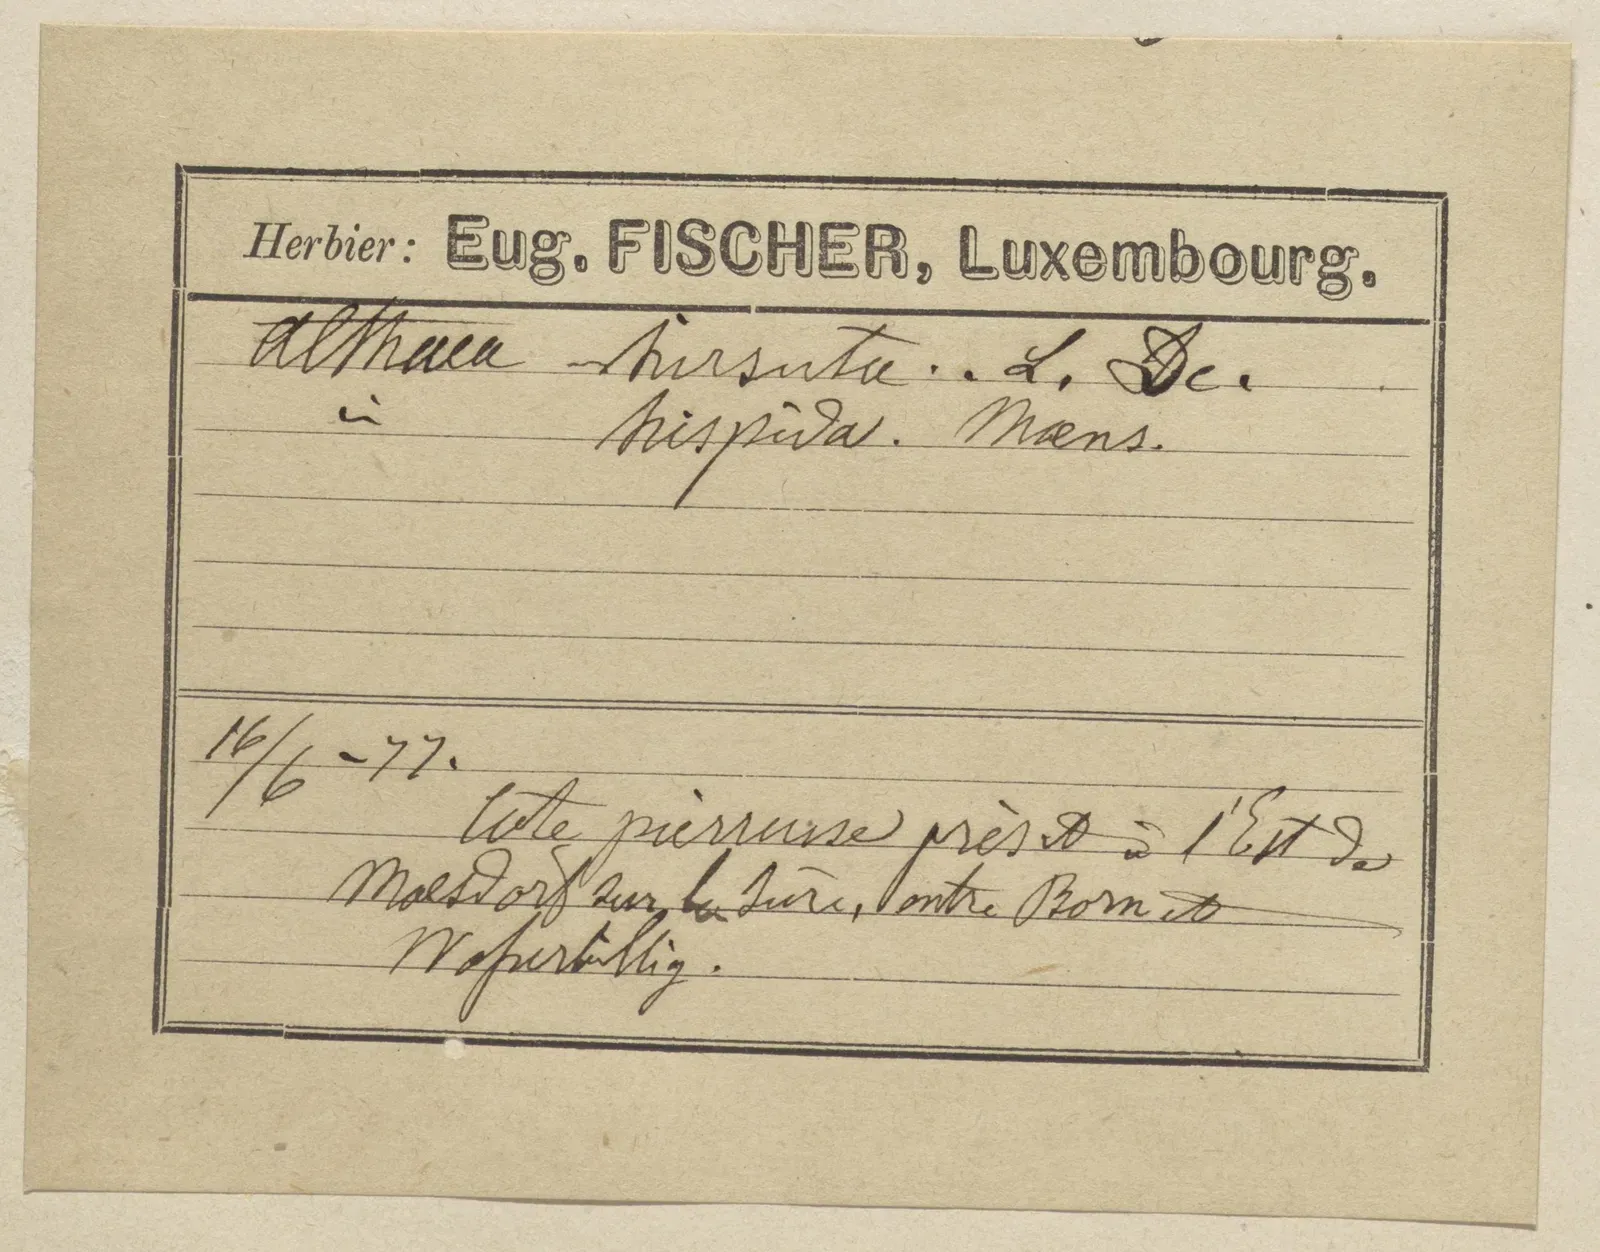 Herbier: Eug. FISCHER, Luxembourg.
Althaea hirsuta. . L. Dc.
" hispida. Mœns.
16/6 -77.
Côte pierreuse près et à l'Est de
Moesdorf sur la Sûre, entre Born et
Wasserbillig.